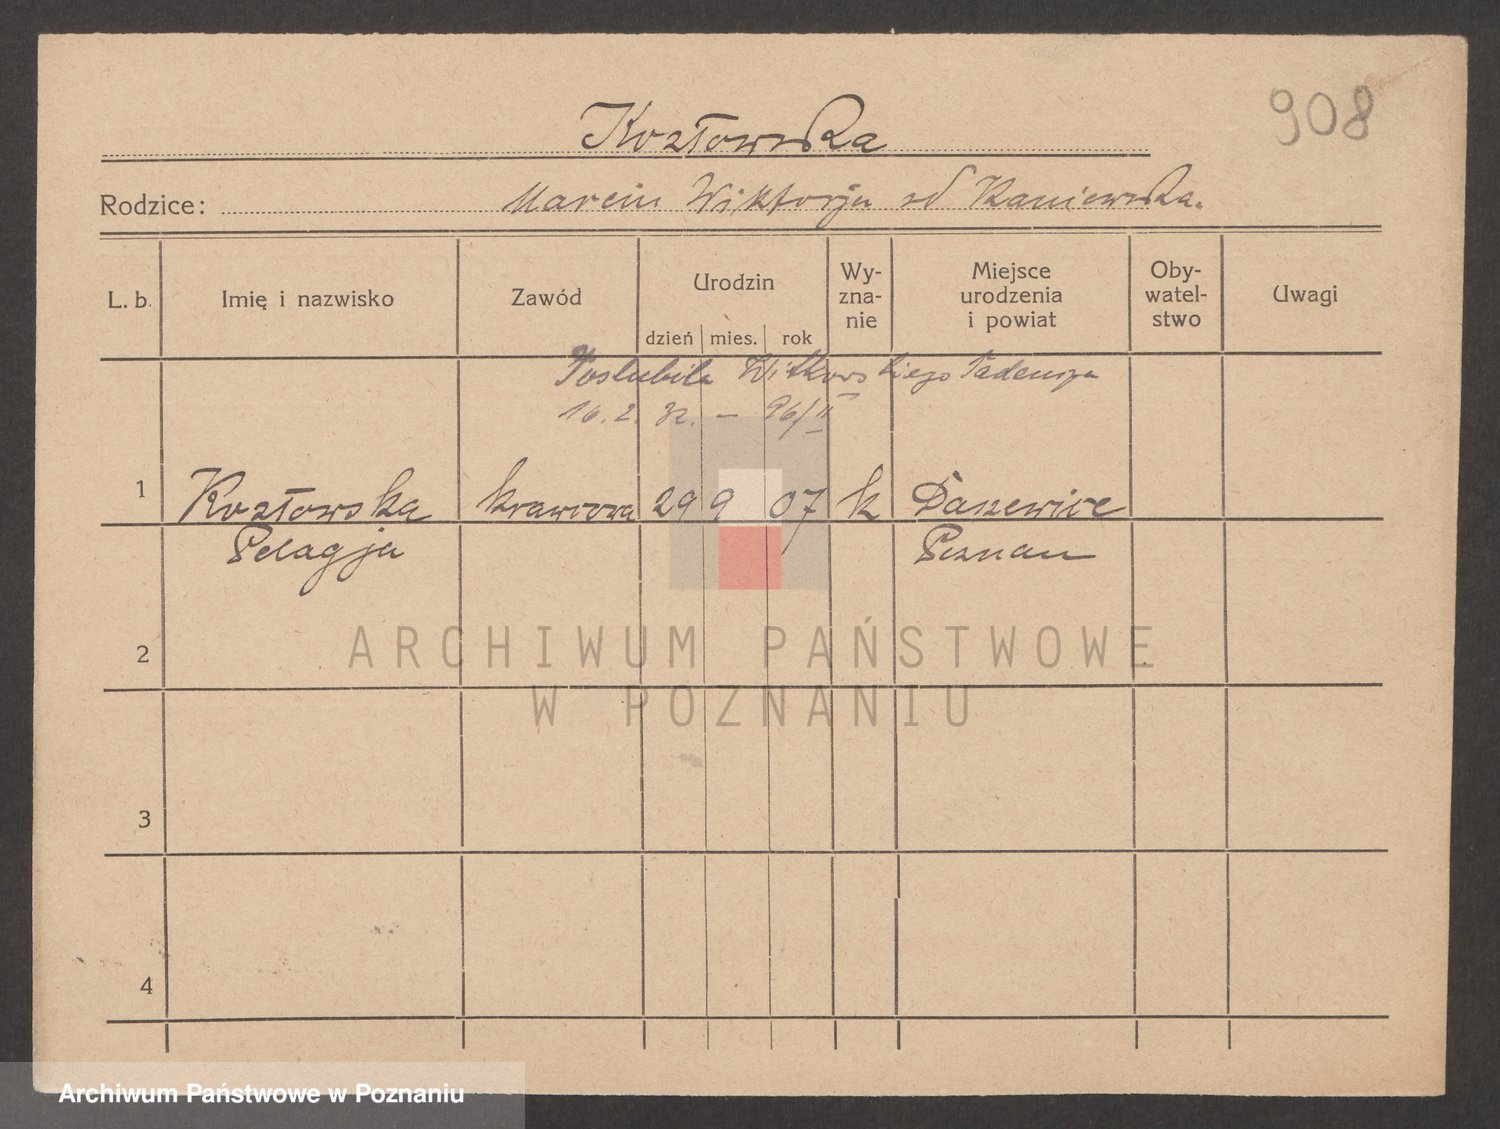 908
Kozłowska
Rodzice: Marcin Wiktorja od Kaniewska.
L. b. Imię i nazwisko Zawód Urodzin dzień mies. rok Wy-zna-nie Miejsce urodzenia i powiat Oby-watel-stwo Uwagi
Poslubiła Witkowskiego Tadeusza
16. 2. 32. — 96/II
1 Kozłowska krawcowa 29 9 07 k Daszewice
Pelagja Poznan
2
ARCHIWUM PAŃSTWOWE
W POZNANIU
3
4
Archiwum Państwowe w Poznaniu